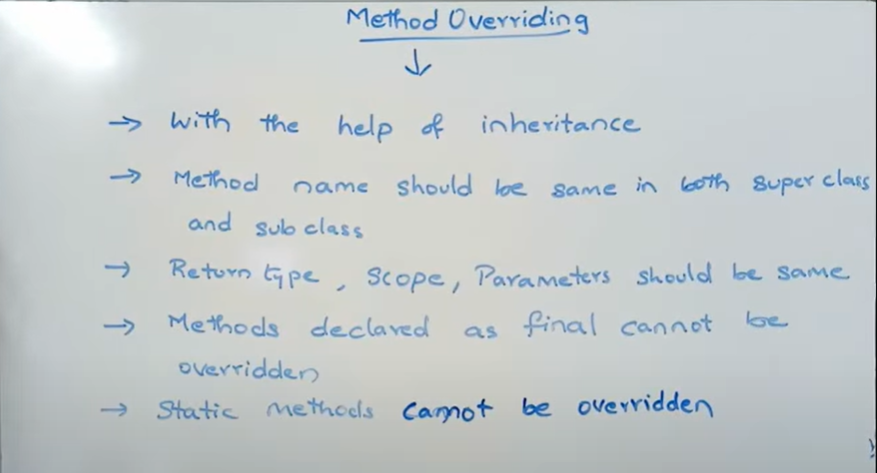 Method Overriding
↓
→ With the help of inheritance
→ Method name should be same in both super class
and sub class
→ Return type, Scope, Parameters should be same
→ Methods declared as final cannot be
overridden
→ Static methods cannot be overridden